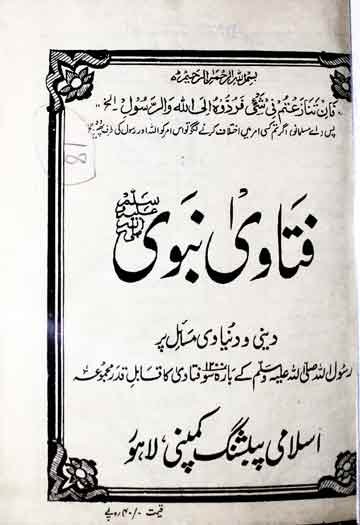 بسم اللہ الرحمٰن الرحیم
فَاِنْ تَنَازَعْتُمْ فِیْ شَیْءٍ فَرُدُّوْهُ اِلَی اللهِ وَالرَّسُوْلِ - الخ
پس (اے مسلمانو) اگر تم کسی امر میں اختلاف کرنے لگو تو اس امر کو اللہ اور رسول کی
18
فتاویٰ نبوی صلی اللہ علیہ وسلم
دینی و دنیاوی مسائل پر
رسول اللہ صلی اللہ علیہ وسلم کے بارہ سو ۱۲۰۰ فتاوی کا قابل قدر مجموعہ
اسلامی پبلشنگ کمپنی، لاہور
قیمت ۴۰/۰ روپے